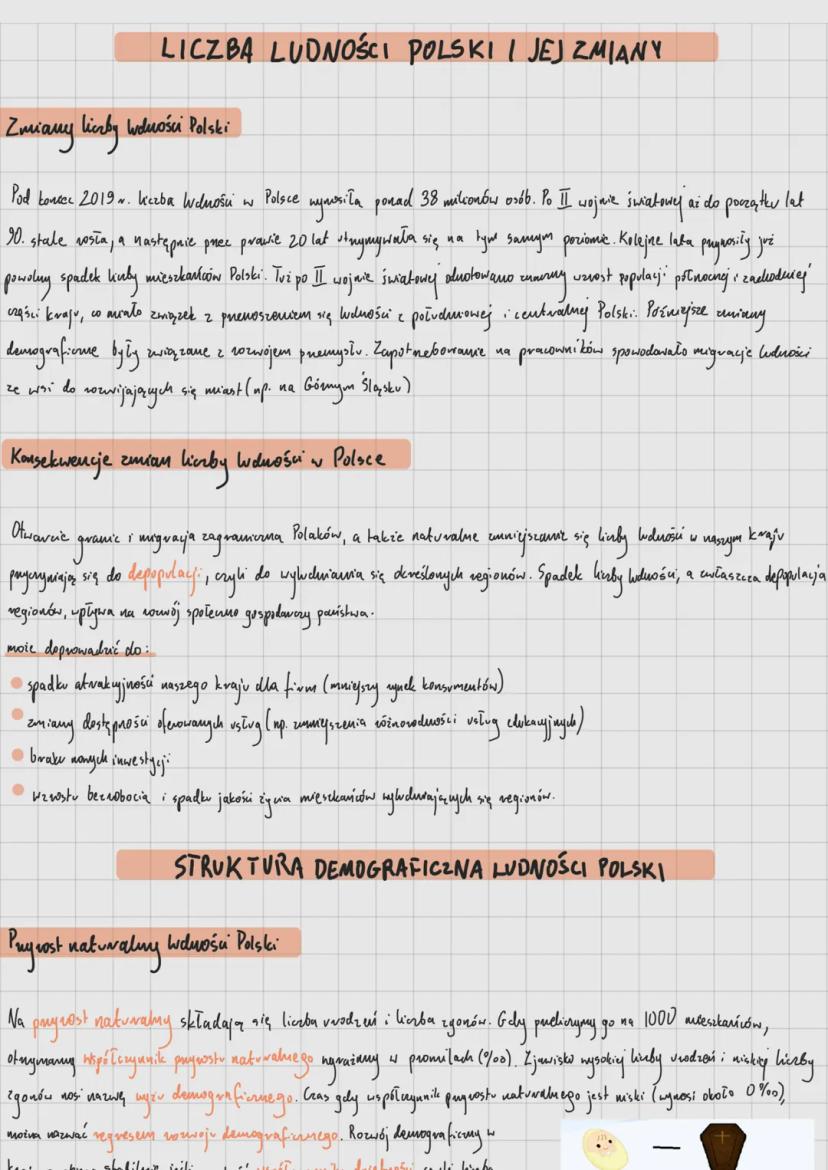 LICZBA LUDNOŚCI POLSKI I JEJ ZMIANY
Zmiany liczby ludności Polski
Pod koniec 2019 r. liczba ludności w Polsce wynosiła ponad 38 milionów osób. Po II wojnie światowej aż do początku lat
90. stale rosła, a następnie przez prawie 20 lat utrzymywała się na tym samym poziomie. Kolejne lata przyniosły już
powolny spadek liczby mieszkańców Polski. Tuż po II wojnie światowej odnotowano znaczny wzrost populacji północnej i zachodniej
części kraju, co miało związek z przenoszeniem się ludności z południowej i centralnej Polski. Późniejsze zmiany
demograficzne były związane z rozwojem przemysłu. Zapotrzebowanie na pracowników spowodowało migracje ludności
ze wsi do rozwijających się miast (np. na Górnym Śląsku)
Konsekwencje zmian liczby ludności w Polsce
Otwarcie granic i migracja zagraniczna Polaków, a także naturalne zmniejszanie się liczby ludności w naszym kraju
przyczyniają się do depopulacji, czyli do wyludniania się określonych regionów. Spadek liczby ludności, a zwłaszcza depopulacja
regionów, wpływa na rozwój społeczno gospodarczy państwa.
może doprowadzić do:
spadku atrakcyjności naszego kraju dla firm (mniejszy rynek konsumentów)
zmiany dostępności oferowanych usług (np. zmniejszenia różnorodności usług edukacyjnych)
braku nowych inwestycji
wzrostu bezrobocia i spadku jakości życia mieszkańców wyludniających się regionów.
STRUKTURA DEMOGRAFICZNA LUDNOŚCI POLSKI
Przyrost naturalny ludności Polski
Na przyrost naturalny składają się liczba urodzeń i liczba zgonów. Gdy przeliczymy go na 1000 mieszkańców,
otrzymamy współczynnik przyrostu naturalnego wyrażany w promilach (‰). Zjawisko wysokiej liczby urodzeń i niskiej liczby
zgonów nosi nazwę wyżu demograficznego. Czas gdy współczynnik przyrostu naturalnego jest niski (wynosi około 0‰),
można nazwać regresem rozwoju demograficznego. Rozwój demograficzny w